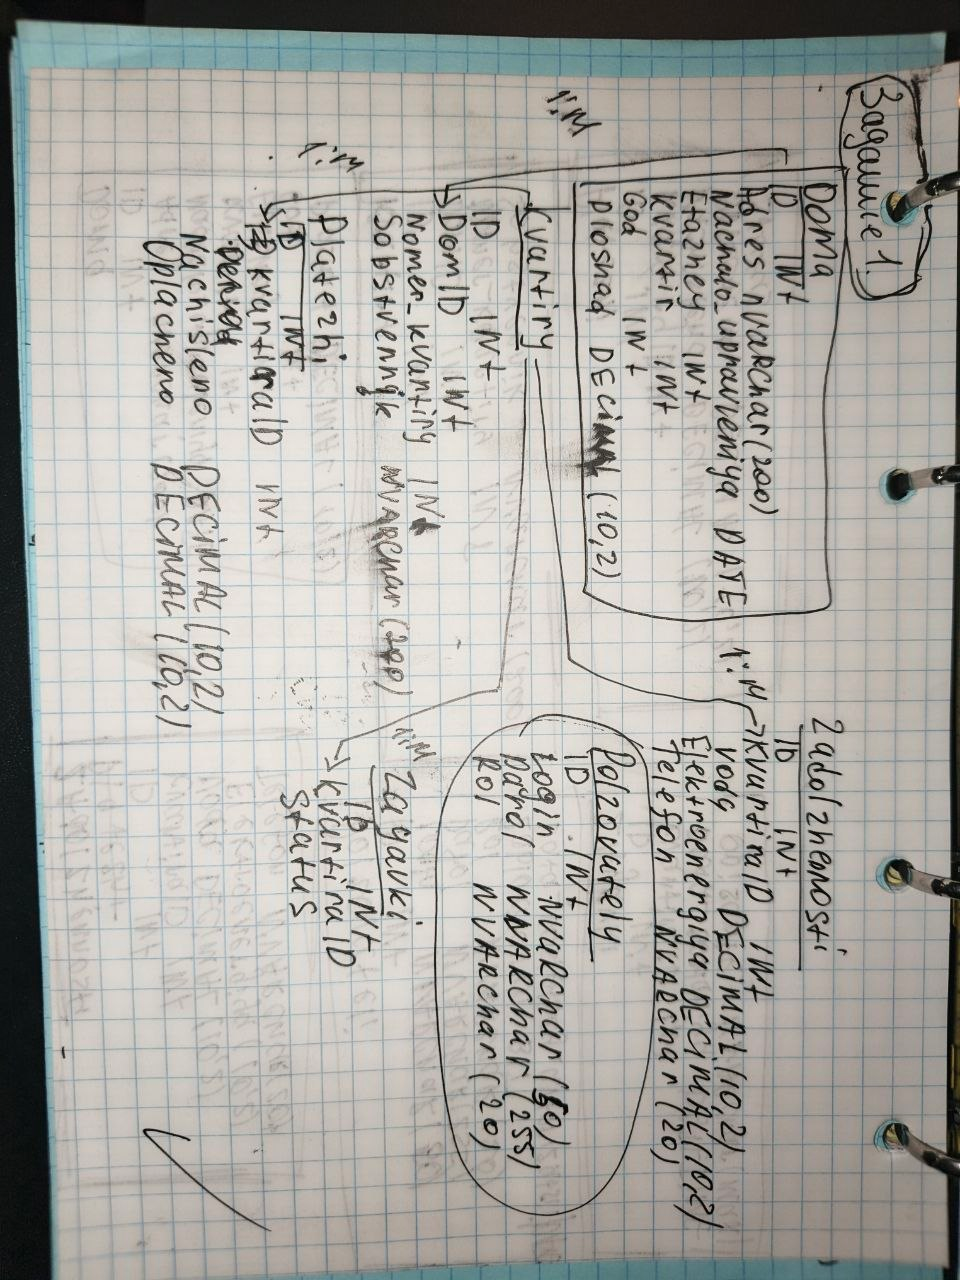 Задание 1.
Doma
ID INt
Adres nvaRchar(200)
Nachalo_upravleniya DATE
Etazhey INt
kvartir INt
God INt
ploshad DEcimAl (10,2)
1:M
Kvartiry
ID INt
DomID INt
Nomer_kvartiry INt
Sobstvennyk NVARchar(200)
1:M
Platezhi
ID INt
kvartiraID INt
Period
Nachisleno DECiMAL(10,2)
Oplacheno DECiMAL(10,2)
Zadolzhenosti
ID INt
1:M
kvartiraID INt
voda DECiMAL(10,2)
Elektroenergiya DECiMAL(10,2)
Telefon NVARchar(20)
Polzovately
ID INt
Login NVARchar(50)
parol NVARchar(255)
Rol NVARchar(20)
1:M
Zayavki
ID INt
kvartiraID
Status